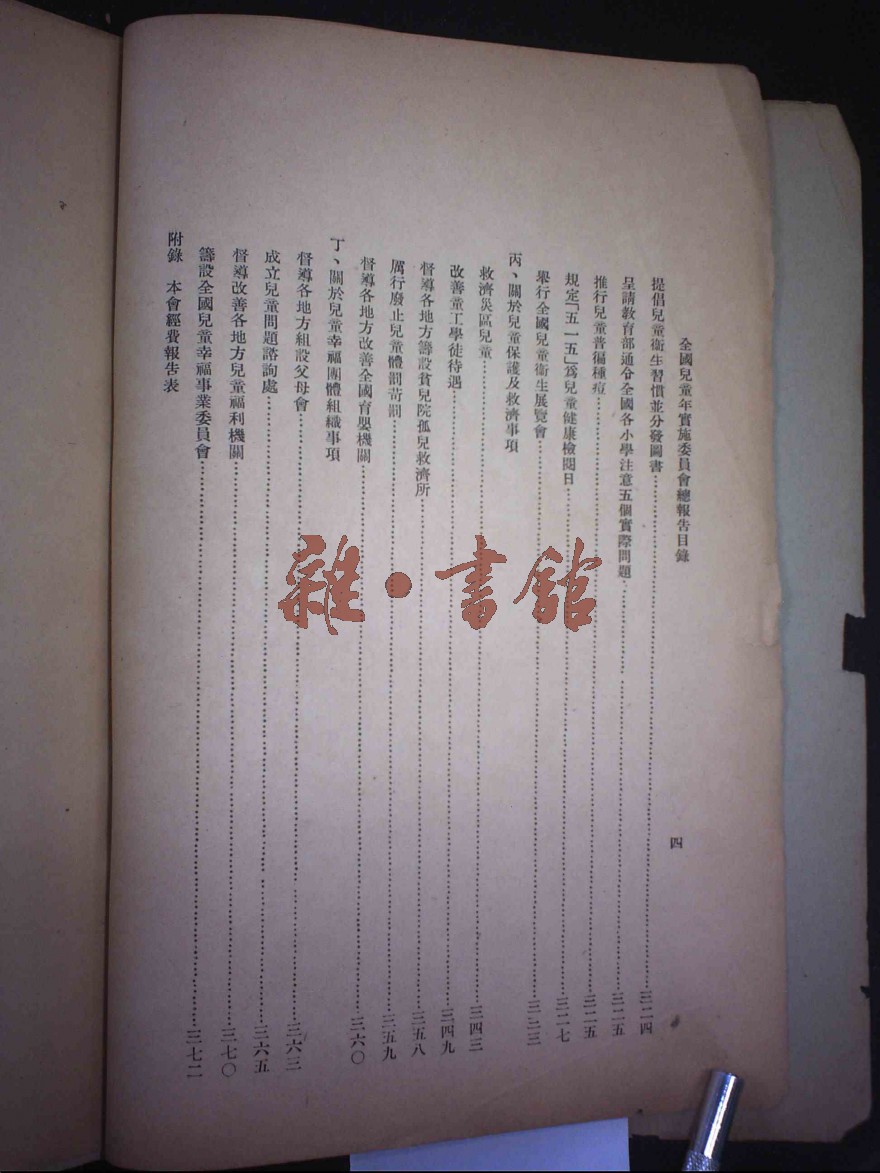 全國兒童年實施委員會總報告目錄
四
提倡兒童衛生習慣並分發圖書……三二四
呈請教育部通令全國各小學注意五個實際問題……三二五
推行兒童普徧種痘……三二五
規定「五一五」爲兒童健康檢閱日……三二七
舉行全國兒童衛生展覽會……三三三
丙、關於兒童保護及救濟事項
救濟災區兒童……三四三
改善童工學徒待遇……三四九
督導各地方籌設貧兒院孤兒救濟所……三五八
厲行廢止兒童體罰苛罰……三五九
督導各地方改善全國育嬰機關……三六〇
丁、關於兒童幸福團體組織事項
督導各地方組設父母會……三六三
成立兒童問題諮詢處……三六五
督導改善各地方兒童福利機關……三七〇
籌設全國兒童幸福事業委員會……三七二
附錄　本會經費報告表
雜·書館